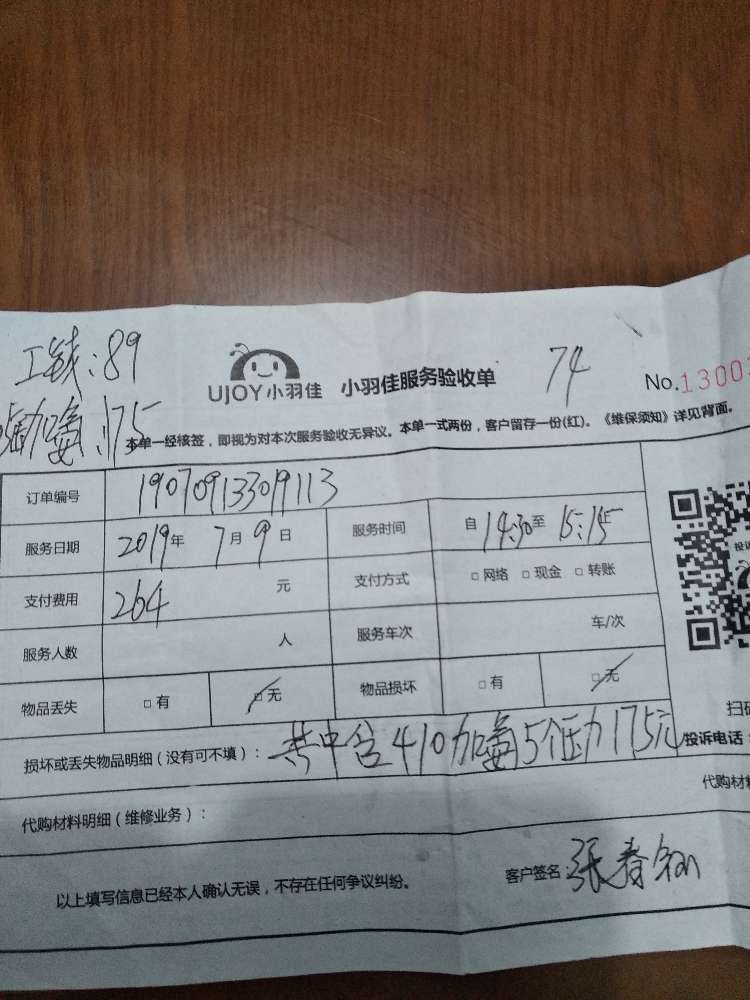 工钱:89
加氟:175
UJOY小羽佳 小羽佳服务验收单 74 No.1300
本单一经核签，即视为对本次服务验收无异议。本单一式两份，客户留存一份(红)。《维保须知》详见背面。
订单编号 19070913301９113
服务日期 2019年 7月9日 服务时间 自14:30至15:15
支付费用 264 元 支付方式 □网络 □现金 □转账
服务人数 人 服务车次 车/次
物品丢失 □有 □无 物品损坏 □有 □无
投诉
扫码
损坏或丢失物品明细（没有可不填）： 其中含410加氟5个压力175元 投诉电话：
代购材料明细（维修业务）： 代购材料
以上填写信息已经本人确认无误，不存在任何争议纠纷。 客户签名 张春